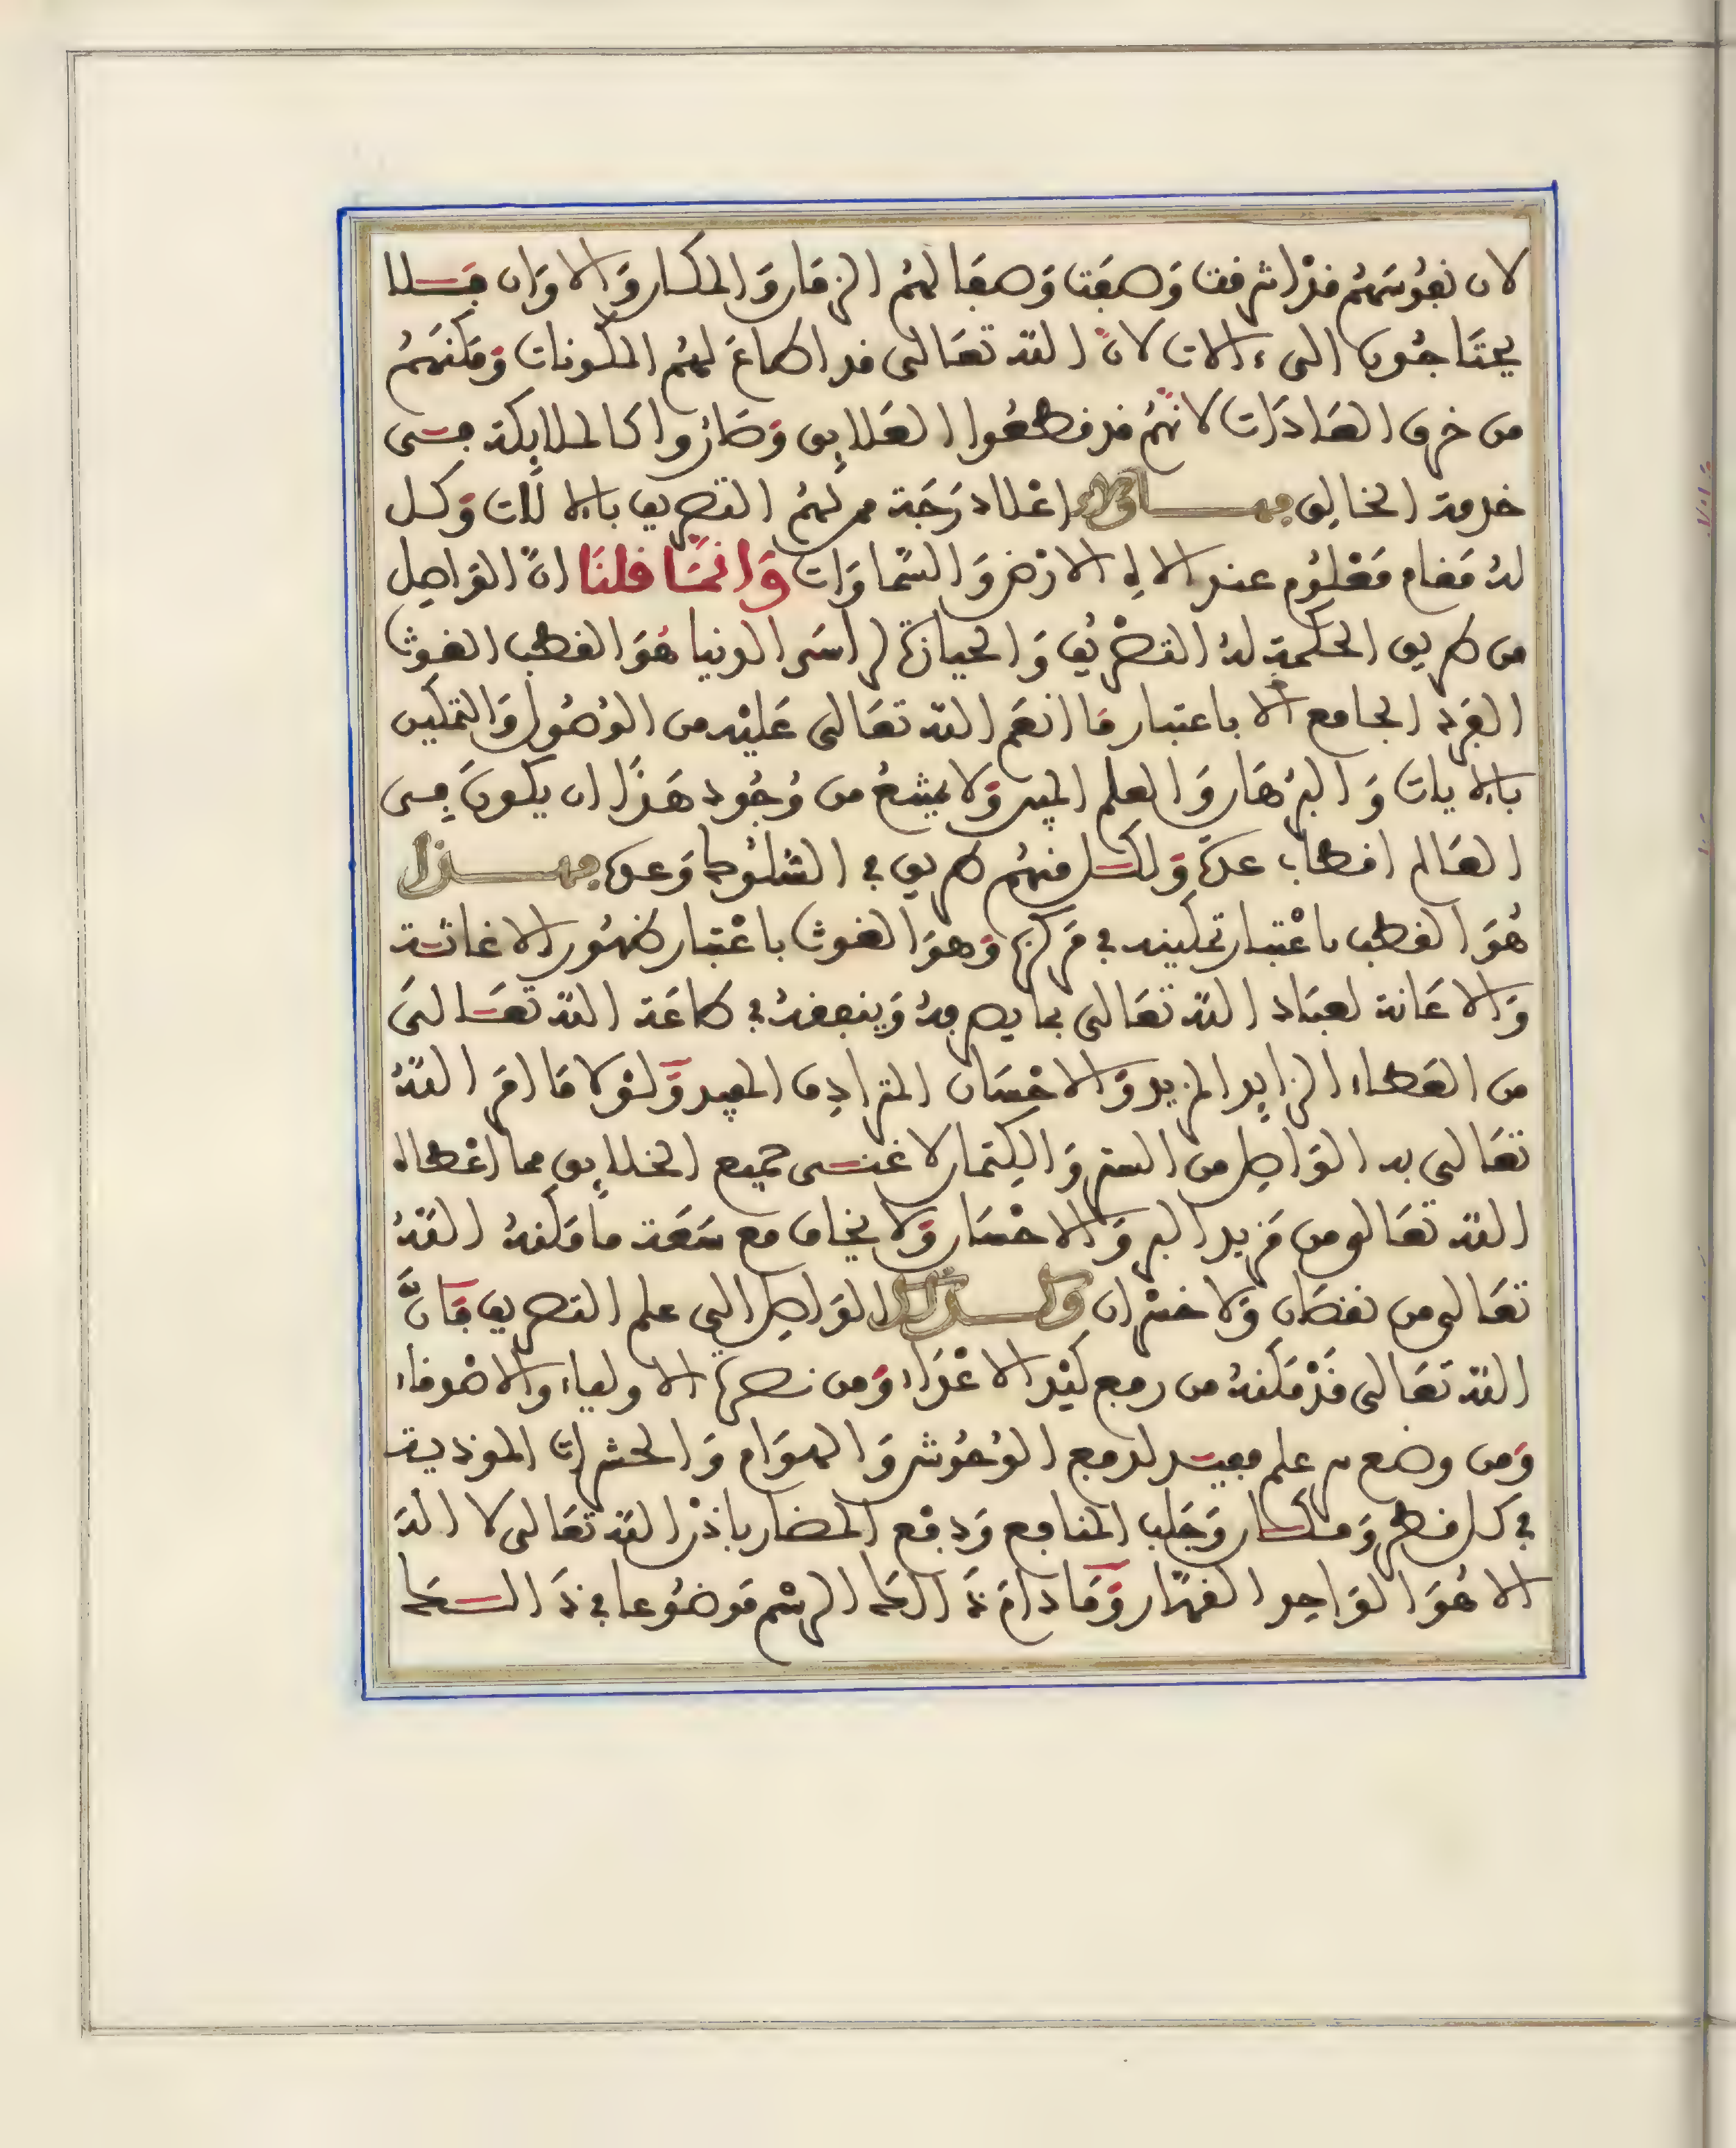 لان نفوسَهُم قدْ اشرقت وَصفَت وَصفَا لهُم الزمَان وَالمكان وَالاوَان فَلا
يحتَاجُون الى ءالات لانّ الله تعَالى قد اطاعَ لهُم المكونات وَمَكنَهُم
من خرق العَادَات لانّهُم قد قطعُوا العَلايِق وَصَارُوا كالملايِكة فى
خدمة الخالِق فهـاولاء اعْلا دَرَجَة ممن لهُم التصريف بالالات وَكل
لهُ مَقام مَعْلُوم عند الاه الارْض وَالسّماوَات وَانمَا قلنَا انّ الوَاصِل
من طريق الحكمةِ لهُ التصْريفُ وَالحيازة لاسرَار الدنيا هُوَ القطب الغوث
الفرد الجامع الا باعتبار مَا انعَم الله تعَالى عَليْه من الوُصُول وَالتمكين
بالايات وَالبرْهَان وَالعلم المبين وَلا يمنعُ من وُجُود هَذَا ان يكونَ فِى
العَالم اقطاب عدّة وَلكل منهُم طريق في السُلُوك وَعدة فهـذا
هُوَ القطب باعْتبار تمكينه في مَركزه وَهوَ الغوث باعْتبار ظهُور الاغاثة
وَالاعَانة لعبَاد الله تعَالى بما يصرفهُ وَينفقهُ في طاعَة الله تعَالىَ
من العَطاء الزايِد المزيد وَالاحْسَان المترادِف المفيد وَلوْلا مَا امَر اللهُ
تعَالى به الوَاصِل من الستر وَالكِتمان لاغنى جميع الخلايِق مما اعْطاه
الله تعَالى من مَزيد البر وَالاحْسَان وَلا يخاف مع سَعَة ما مَكنهُ اللهُ
تعَالى من نقصَان وَلا خسْرَان وَكـذالك الوَاصِل الى علم التصريف فَانّ
الله تعَالى قَدْ مَكنهُ من دفع كَيْد الاعْدَاء وَمن نصرة الاولياء وَالاصْدقاء
وَمن وضع سر علم مفيد لدفع الوُحُوش وَالهوَام وَالحشرات الموذية
في كل قطر وَمكان وَجَلب المنافع وَدفْع المضار باذْن الله تعَالى لا اله
الا هُوَ الوَاحِد القهّار وَمَا دامَ ذَالك الرسْم مَوضُوعا في ذَالك